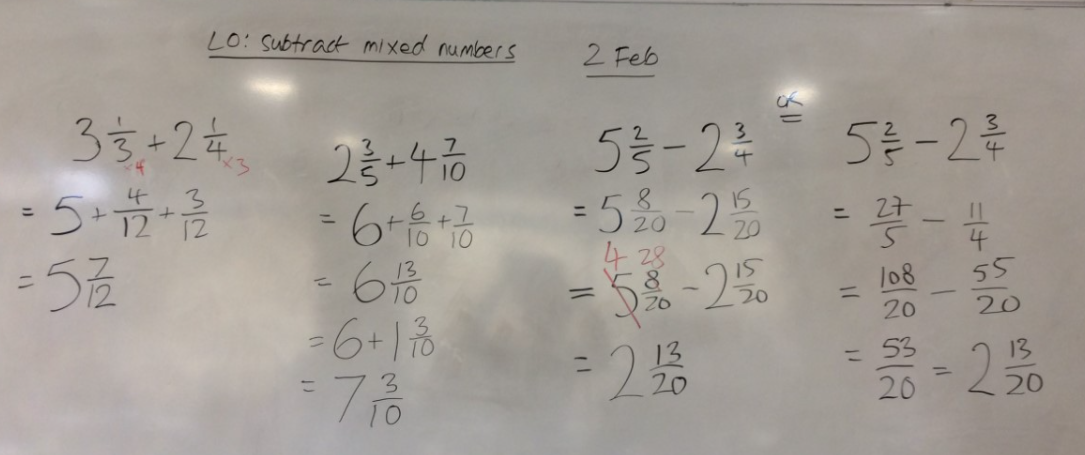 LO: subtract mixed numbers 2 Feb
3 1/3 + 2 1/4
×4 ×3
= 5 + 4/12 + 3/12
= 5 7/12
2 3/5 + 4 7/10
= 6 + 6/10 + 7/10
= 6 13/10
= 6 + 1 3/10
= 7 3/10
5 2/5 − 2 3/4
= 5 8/20 − 2 15/20
4 28
= 5 8/20 − 2 15/20
= 2 13/20
or
5 2/5 − 2 3/4
= 27/5 − 11/4
= 108/20 − 55/20
= 53/20 = 2 13/20